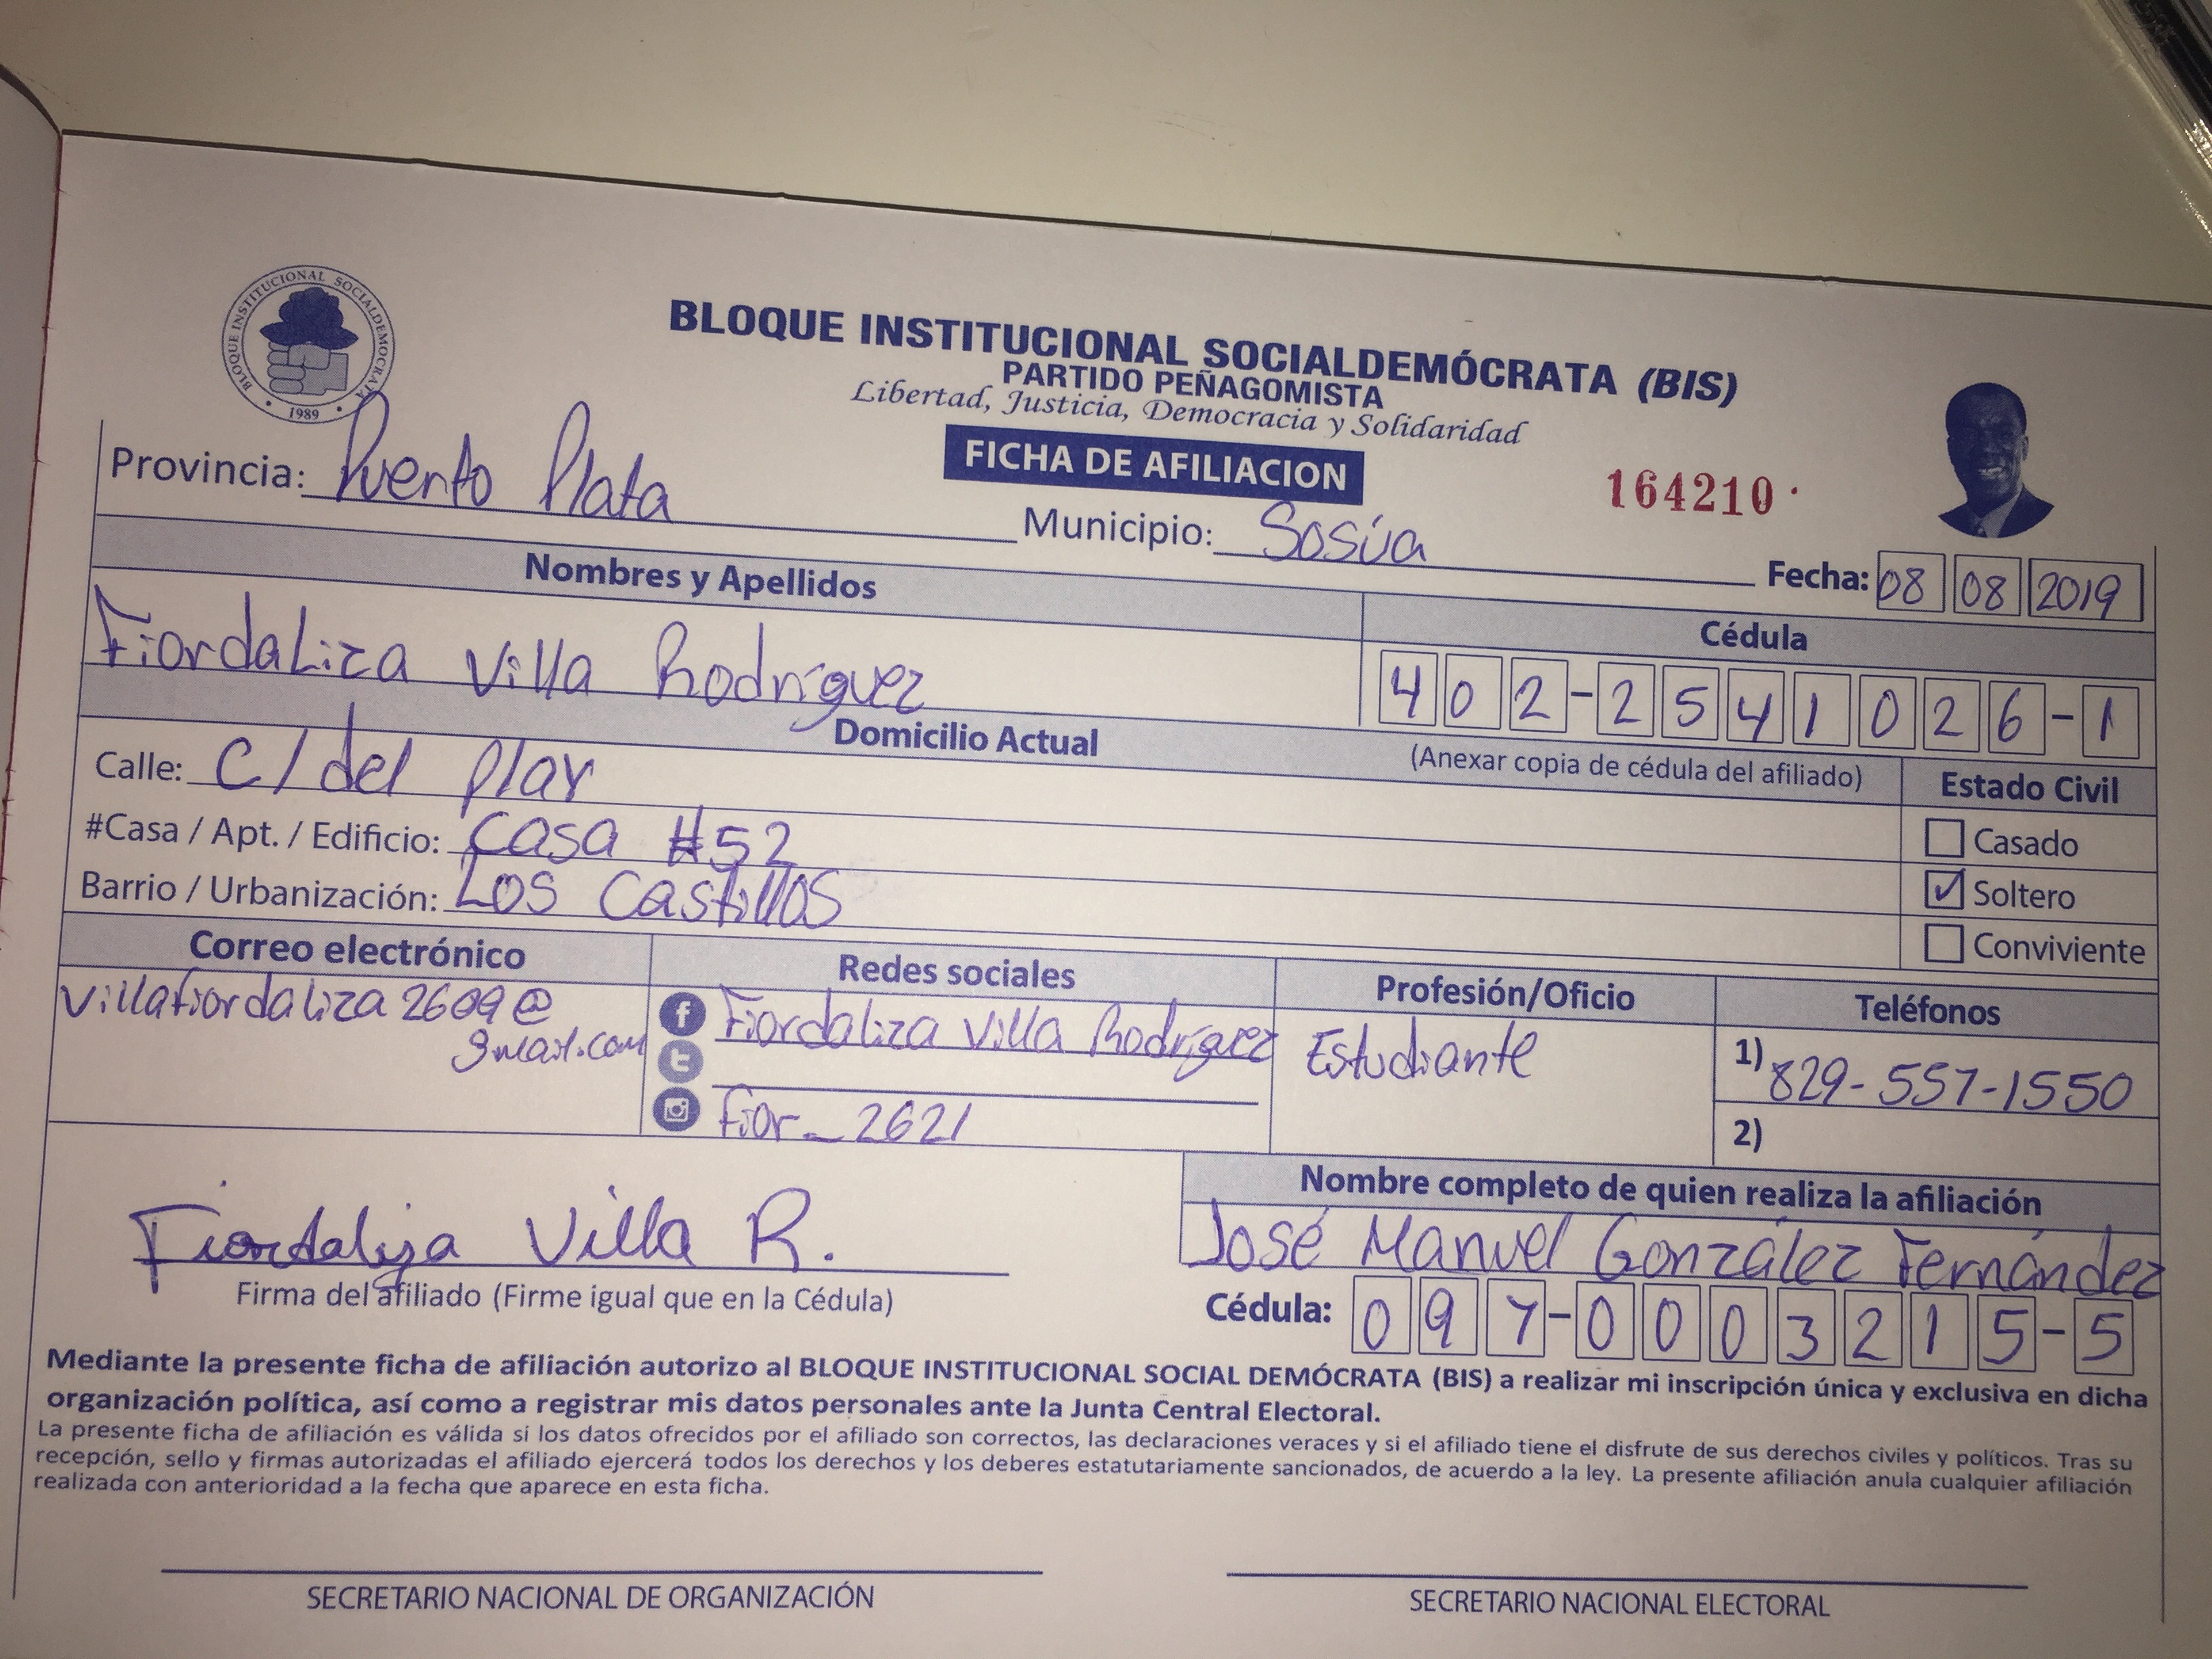 BLOQUE INSTITUCIONAL SOCIALDEMOCRATA
• 1989 •
BLOQUE INSTITUCIONAL SOCIALDEMÓCRATA (BIS)
PARTIDO PEÑAGOMISTA
Libertad, Justicia, Democracia y Solidaridad
FICHA DE AFILIACION
164210
Provincia: Puerto Plata Municipio: Sosúa
Fecha: 08 08 2019
Nombres y Apellidos
Cédula
Fiordaliza Villa Rodríguez
402-2541026-1
Domicilio Actual
(Anexar copia de cédula del afiliado)
Estado Civil
Calle: C/ del Play
Casado
#Casa / Apt. / Edificio: Casa #52
✓ Soltero
Barrio / Urbanización: Los Castillos
Conviviente
Correo electrónico Redes sociales Profesión/Oficio Teléfonos
villafiordaliza2609@
gmail.com
f Fiordaliza Villa Rodríguez
t
fior_2621
Estudiante
1) 829-557-1550
2)
Nombre completo de quien realiza la afiliación
José Manuel González Fernández
Cédula: 097-0003215-5
Fiordaliza Villa R.
Firma del afiliado (Firme igual que en la Cédula)
Mediante la presente ficha de afiliación autorizo al BLOQUE INSTITUCIONAL SOCIAL DEMÓCRATA (BIS) a realizar mi inscripción única y exclusiva en dicha
organización política, así como a registrar mis datos personales ante la Junta Central Electoral.
La presente ficha de afiliación es válida si los datos ofrecidos por el afiliado son correctos, las declaraciones veraces y si el afiliado tiene el disfrute de sus derechos civiles y políticos. Tras su
recepción, sello y firmas autorizadas el afiliado ejercerá todos los derechos y los deberes estatutariamente sancionados, de acuerdo a la ley. La presente afiliación anula cualquier afiliación
realizada con anterioridad a la fecha que aparece en esta ficha.
SECRETARIO NACIONAL DE ORGANIZACIÓN
SECRETARIO NACIONAL ELECTORAL